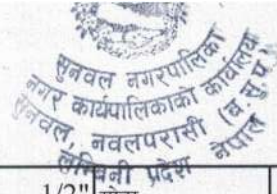 सुनवल नगरपालिका
नगर कार्यपालिकाको कार्यालय
सुनवल, नवलपरासी (ब.सु.प.)
लुम्बिनी प्रदेश नेपाल
1/2"